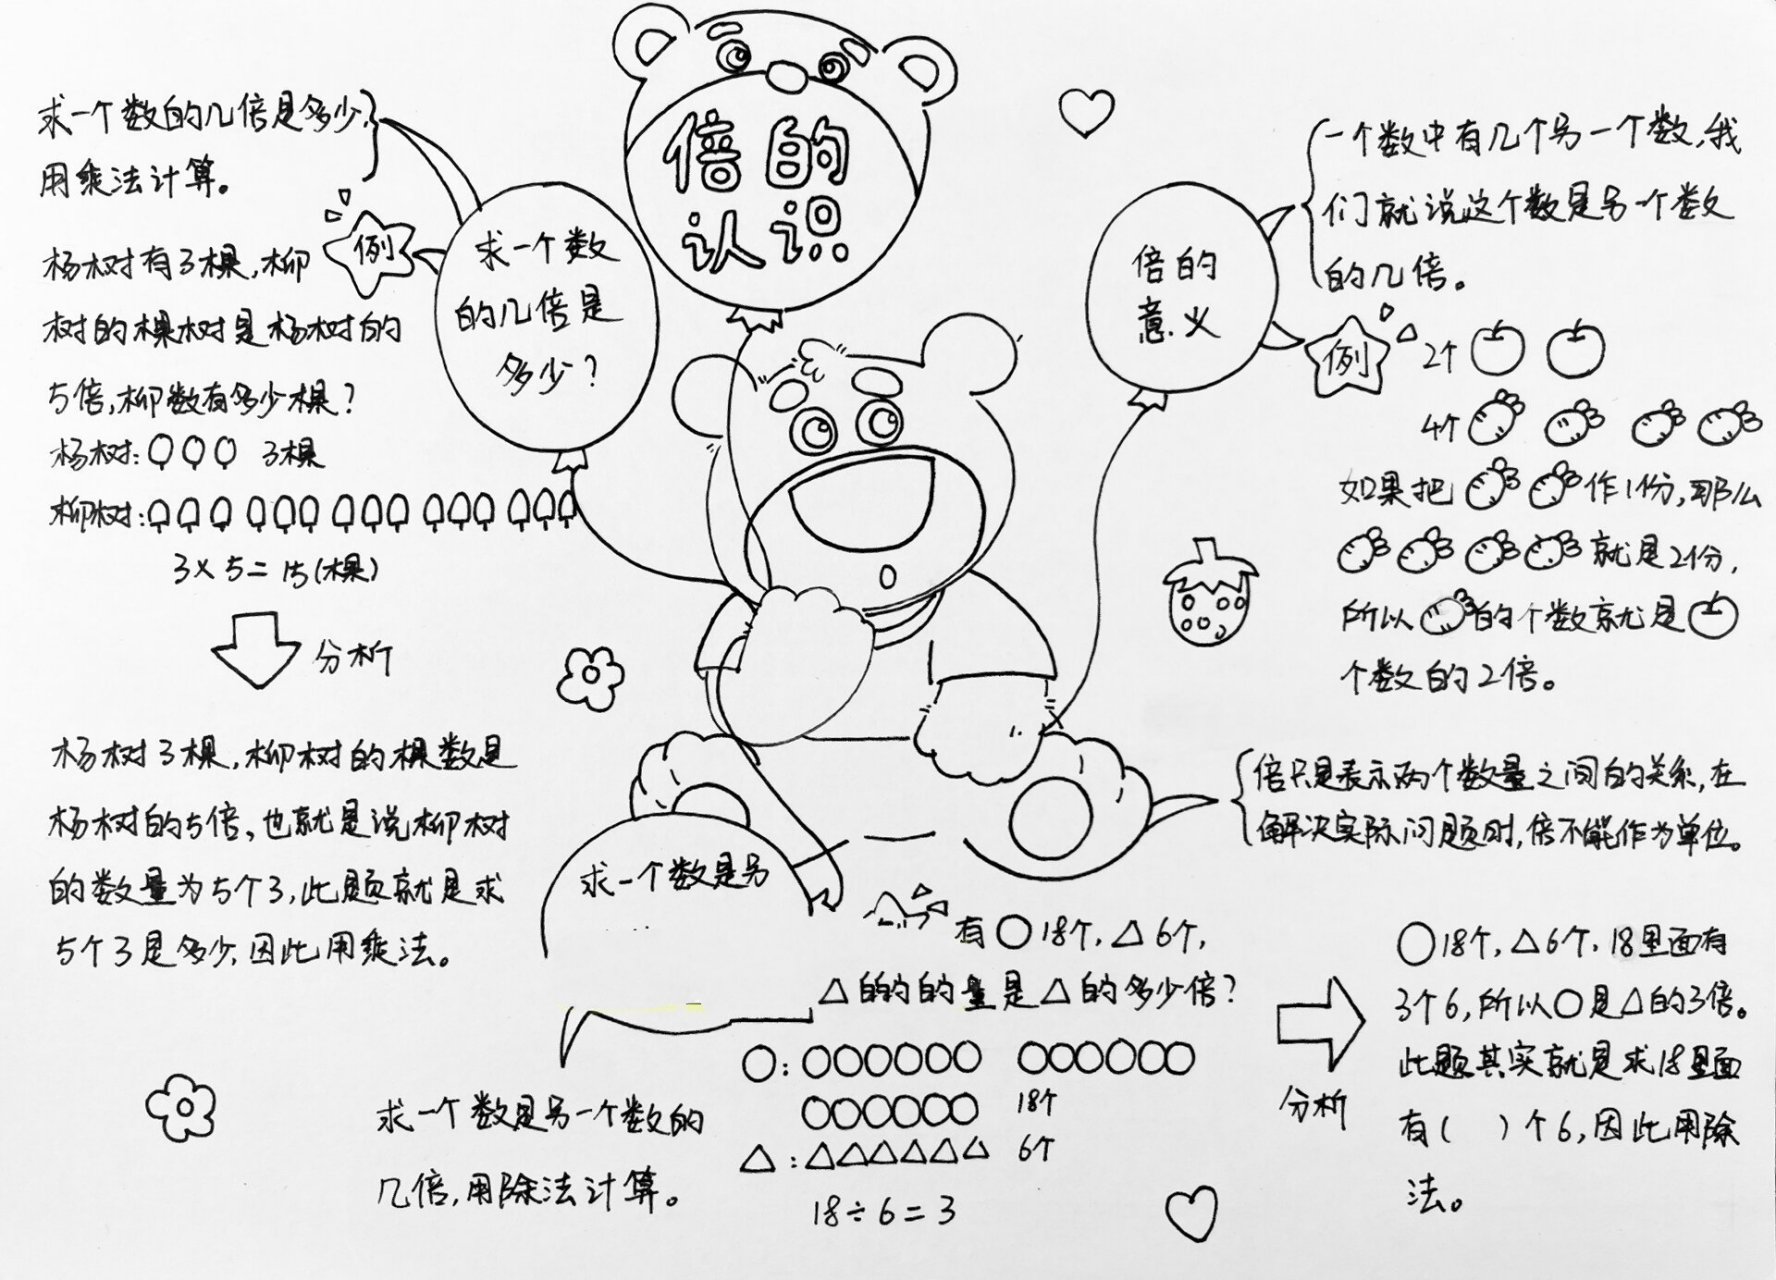 倍的
认识
求一个数的几倍是多少,
用乘法计算。
求一个数
的几倍是
多少?
例
杨树有3棵,柳
树的棵树是杨树的
5倍,柳数有多少棵?
杨树: 3棵
柳树:
3×5=15(棵)
分析
杨树3棵,柳树的棵数是
杨树的5倍,也就是说柳树
的数量为5个3,此题就是求
5个3是多少,因此用乘法。
倍的
意义
一个数中有几个另一个数,我
们就说这个数是另一个数
的几倍。
例
2个
4个
如果把 作1份,那么
就是2份,
所以 的个数就是
个数的2倍。
倍只是表示两个数量之间的关系,在
解决实际问题时,倍不能作为单位。
求一个数是另
求一个数是另一个数的
几倍,用除法计算。
有○18个,△6个,
△的的量是△的多少倍?
○:○○○○○○ ○○○○○○
○○○○○○ 18个
△:△△△△△△ 6个
18÷6=3
分析
○18个,△6个,18里面有
3个6,所以○是△的3倍。
此题其实就是求18里面
有( )个6,因此用除
法。